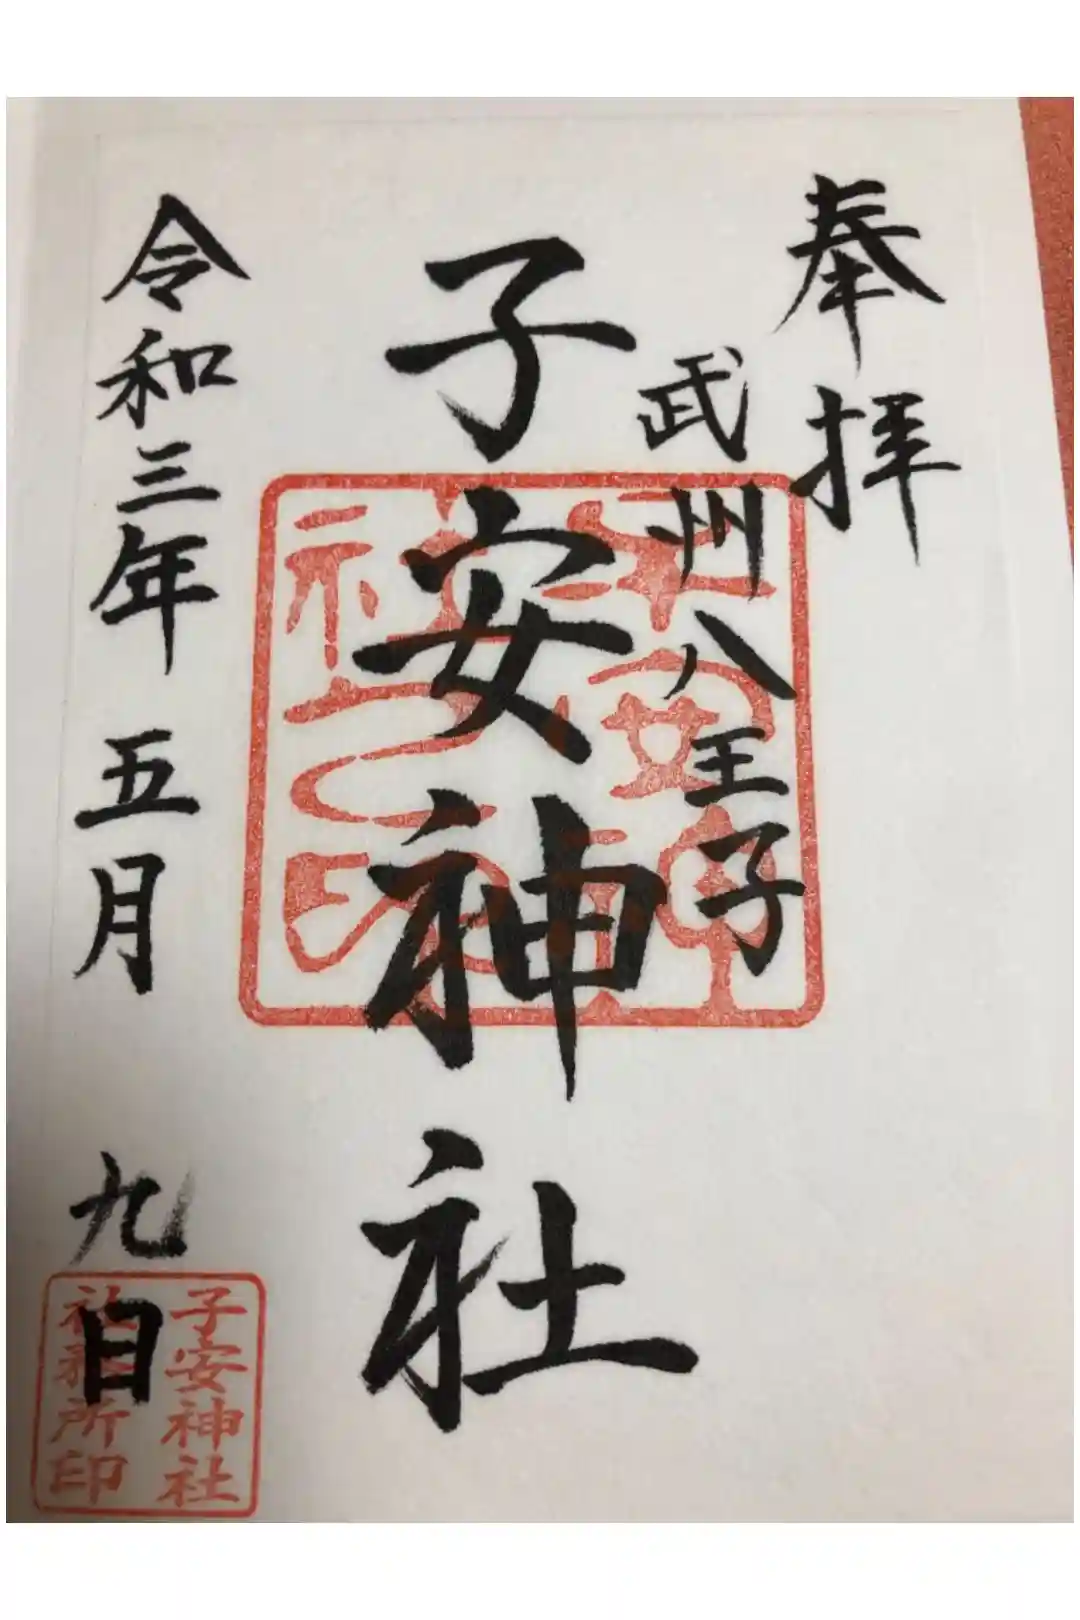 奉拝
武州八王子
子安神社
令和三年五月九日
子安神社之印
子安神社
社務所印